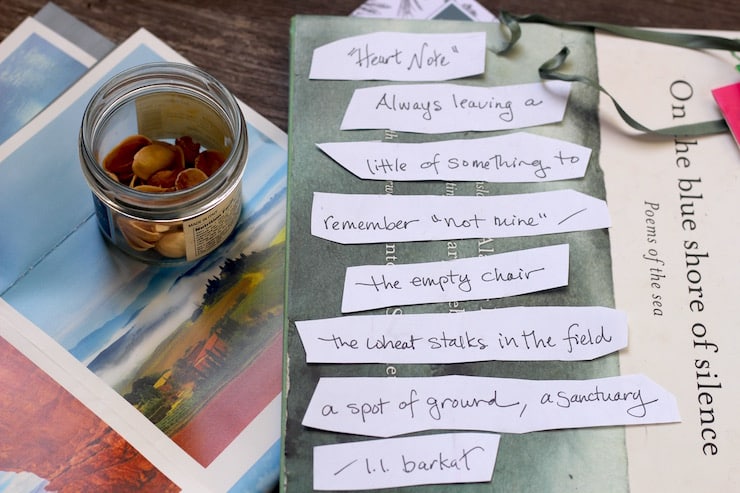 "Heart Note"
Always leaving a
little of something to
remember "not mine" /
the empty chair
the wheat stalks in the field
a spot of ground, a sanctuary
/ l.l. barkat
On he blue shore of silence
Poems of the sea